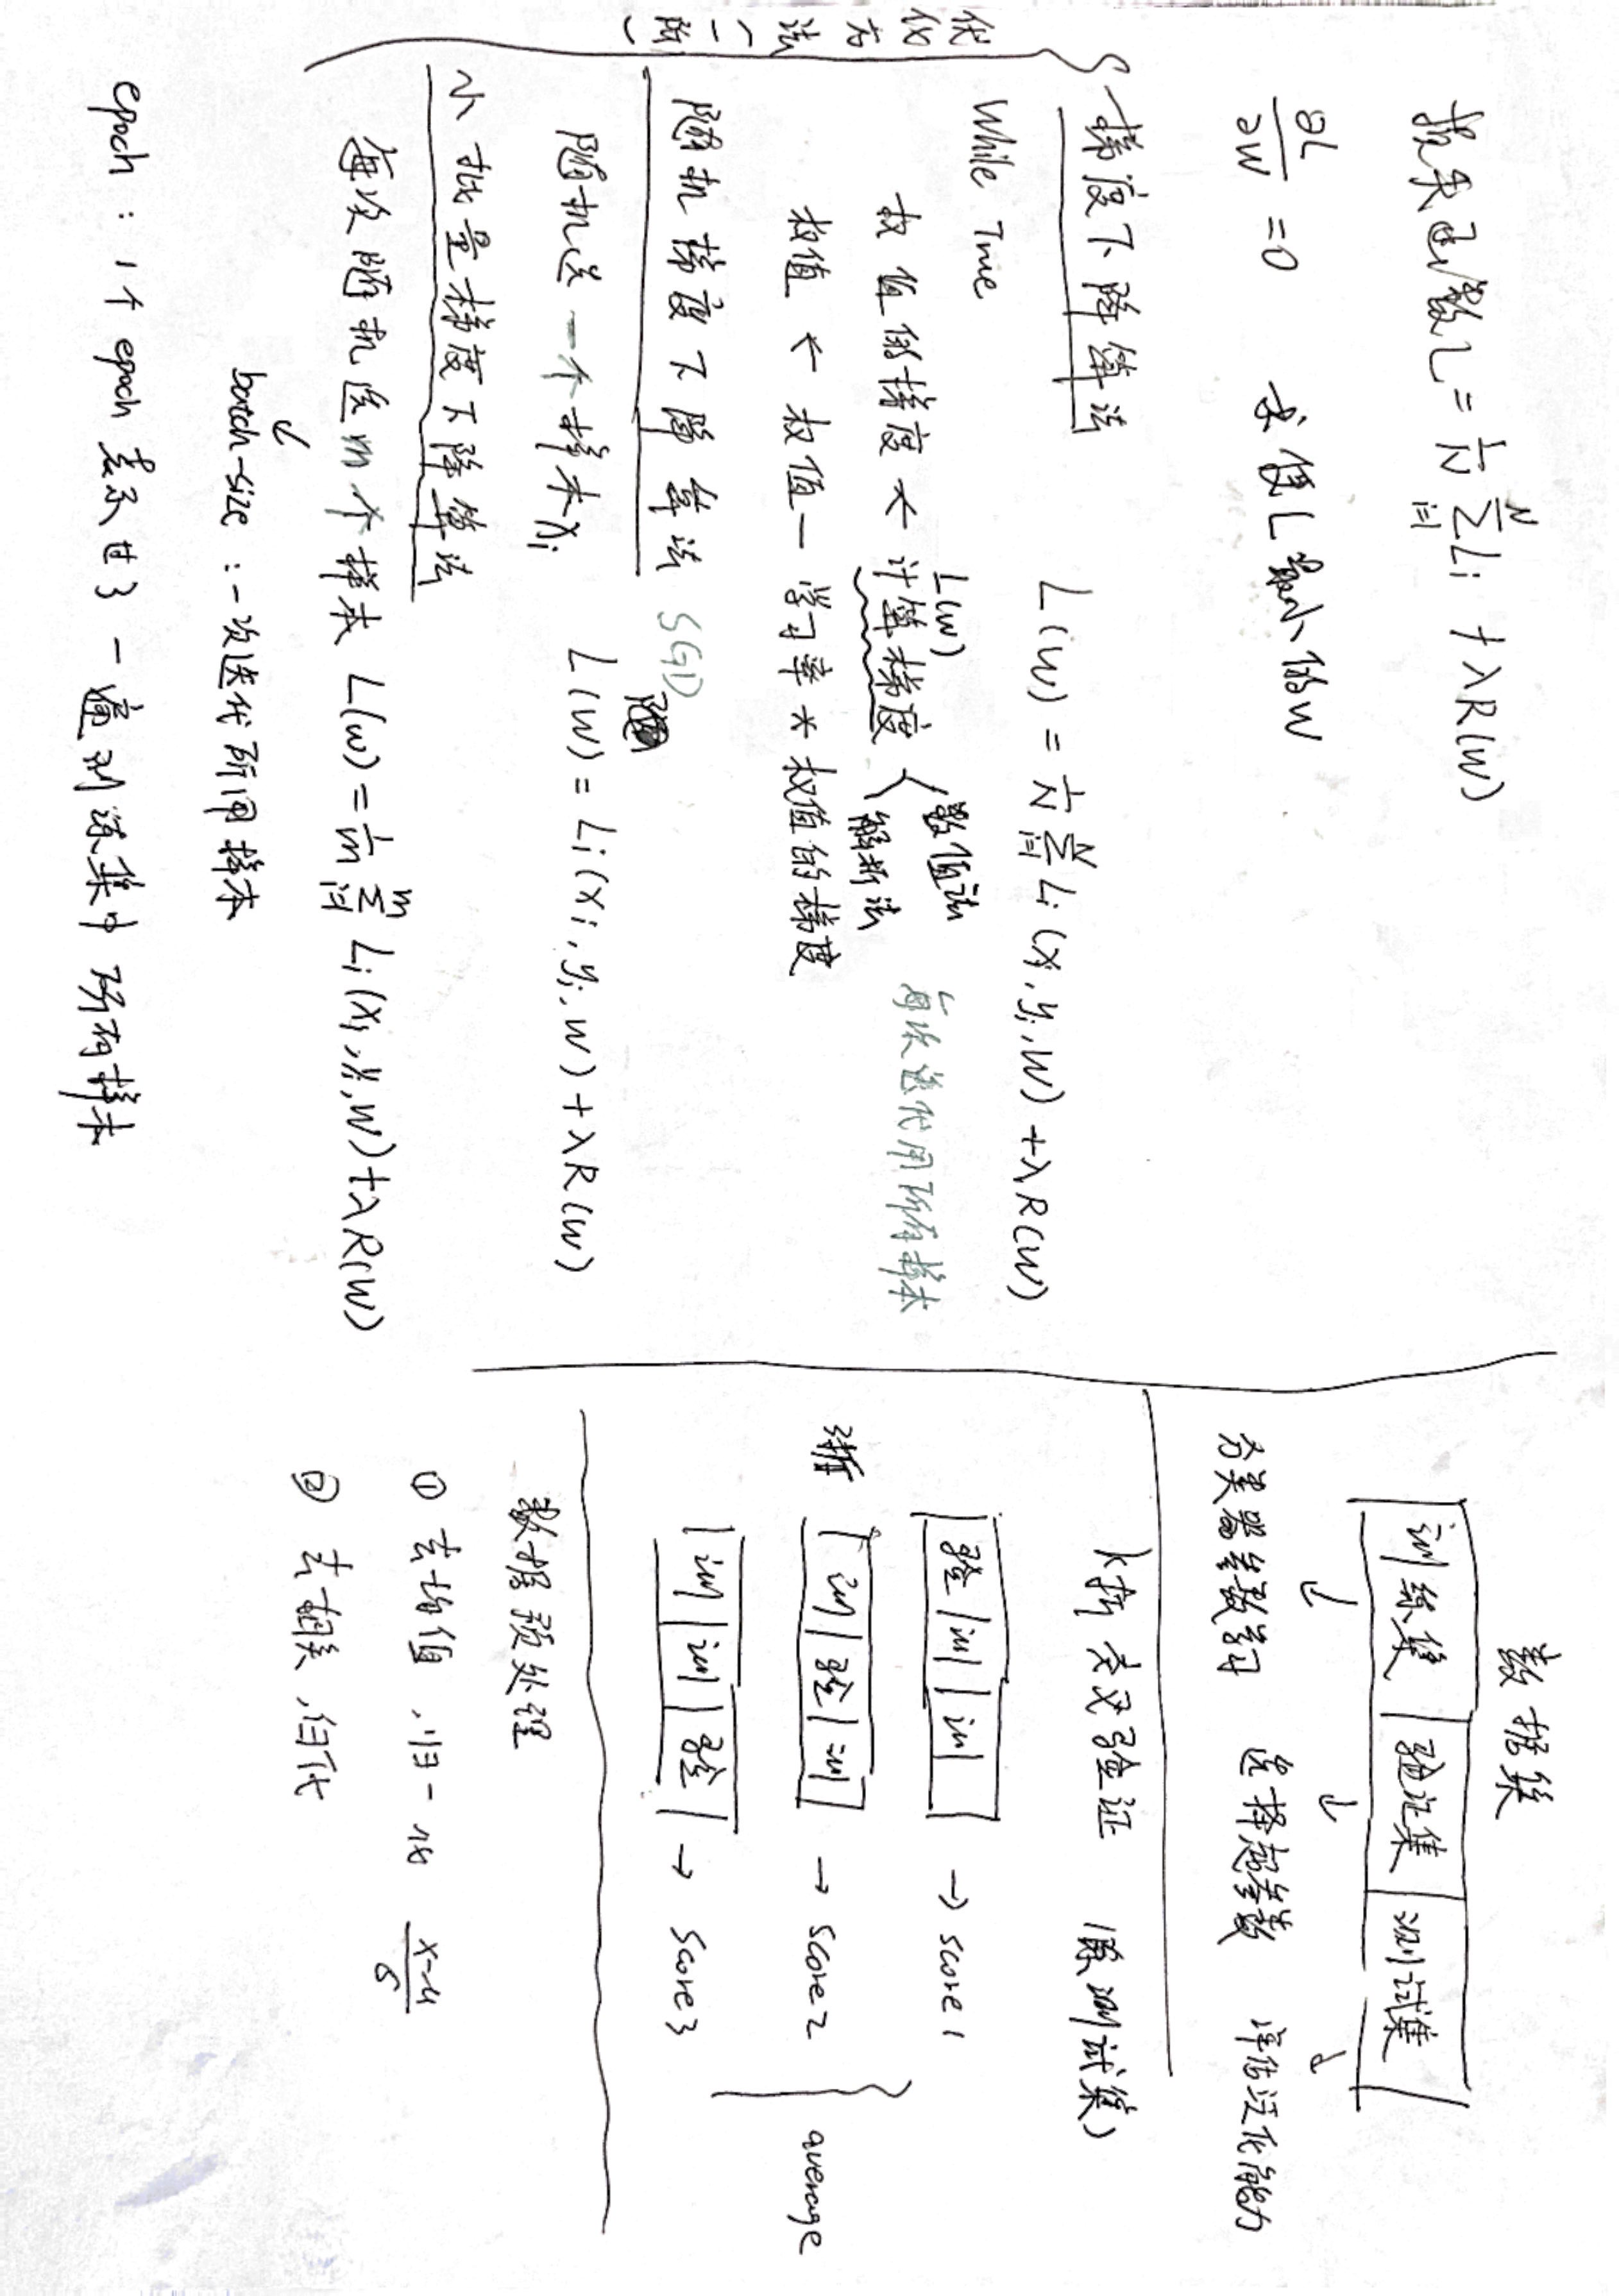 损失函数L = 1/N ∑_{i=1}^{N} Li + λR(W)
∂L/∂W = 0 求使L最小的W
优化方法(一阶)
梯度下降算法
L(W) = 1/N ∑_{i=1}^{N} Li (xi, yi, W) + λR(W)
While True
L(W)
权值的梯度 ← 计算梯度 数值法 解析法
每次迭代用所有样本
权值 ← 权值 — 学习率 * 权值的梯度
随机梯度下降算法 SGD
随机选一个样本xi L(W) = Li(xi, yi, W) + λR(W)
小批量梯度下降算法
每次随机选m个样本 L(W) = 1/m ∑_{i=1}^{m} Li(xi, yi, W) + λR(W)
batch-size : 一次迭代所用样本
epoch : 1个epoch表示过了一遍训练集中所有样本
数据集
训练集 验证集 测试集
分类器参数学习 选择超参数 评估泛化能力
k折交叉验证 (除测试集)
验 训 训 → score 1
3折 训 验 训 → score 2
average
训 训 验 → score 3
数据预处理
① 去均值,归一化 x-μ/σ
② 去相关,白化